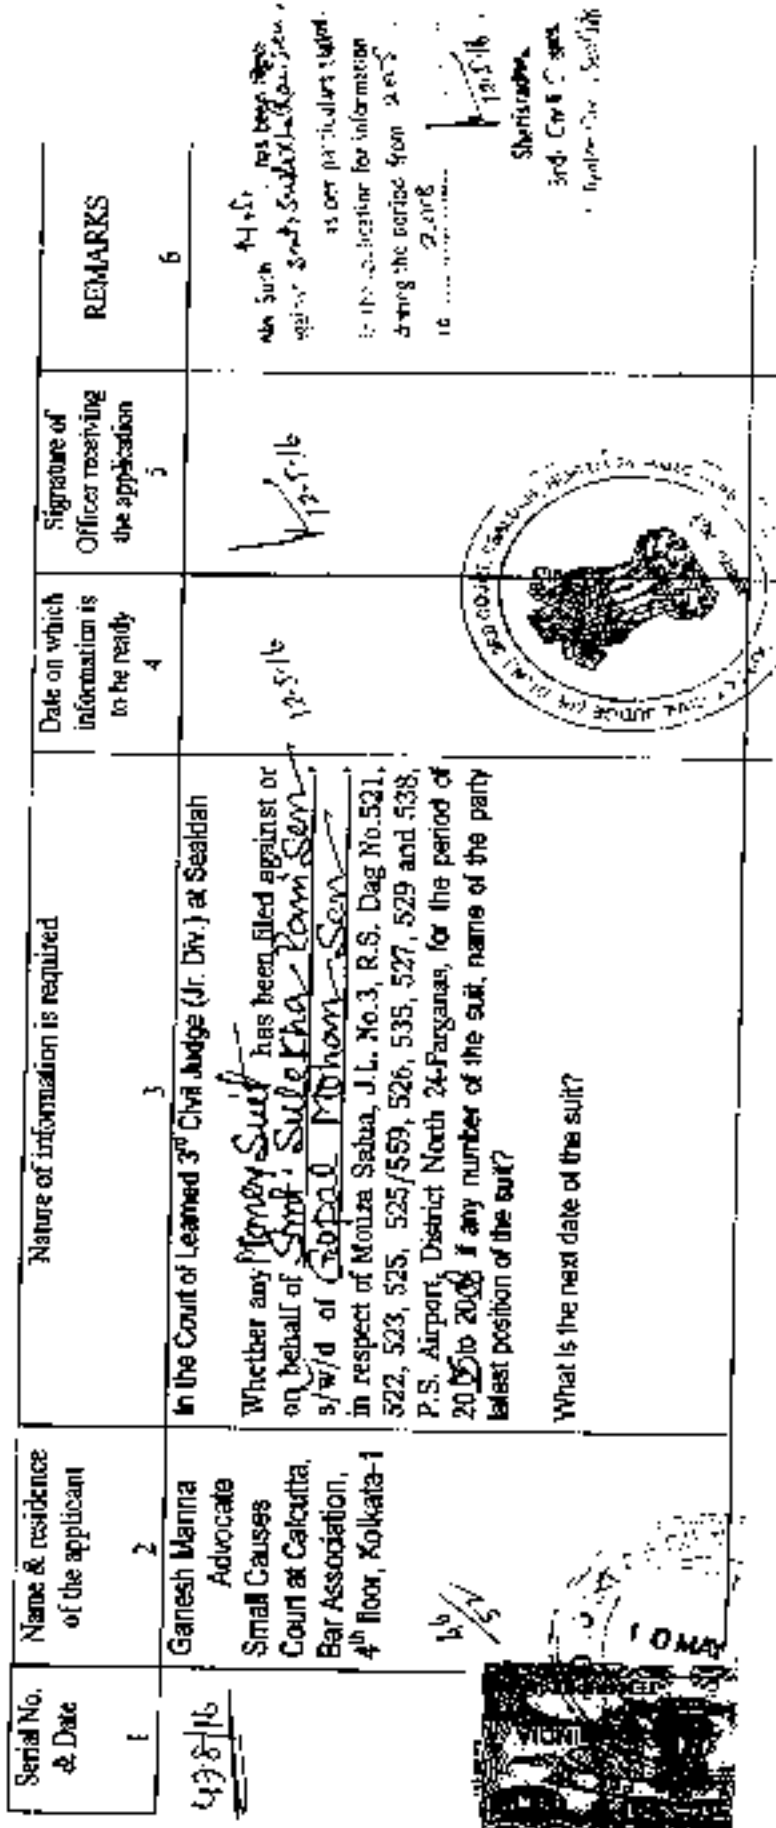 Serial No.
& Date
1
Name & residence
of the applicant
2
Nature of information is required
3
Date on which
information is
to be ready
4
Signature of
Officer receiving
the application
5
REMARKS
6
Ganesh Manna
Advocate
Small Causes
Court at Calcutta,
Bar Association,
4th floor, Kolkata-1
In the Court of Learned 3rd Civil Judge (Jr. Div.) at Sealdah
Whether any Money Suit has been filed against or
on behalf of Smt. Sulekha Rani Sen
s/w/d of Gopal Mohan Sen
in respect of Mouza Salua, J.L. No.3, R.S. Dag No.521,
522, 523, 525, 525/559, 526, 535, 527, 529 and 538,
P.S. Airport, District North 24-Parganas, for the period of
2005 to 2008 if any number of the suit, name of the party
latest position of the suit?
What is the next date of the suit?
12-5-16
12-5-16
Such has been
against Smt. Sulekha Rani Sen
as per particulars
in the application for information
during the period from 2005
to 2008
12-5-16
Sheristadar
3rd Civil
10 MAY
INDIA